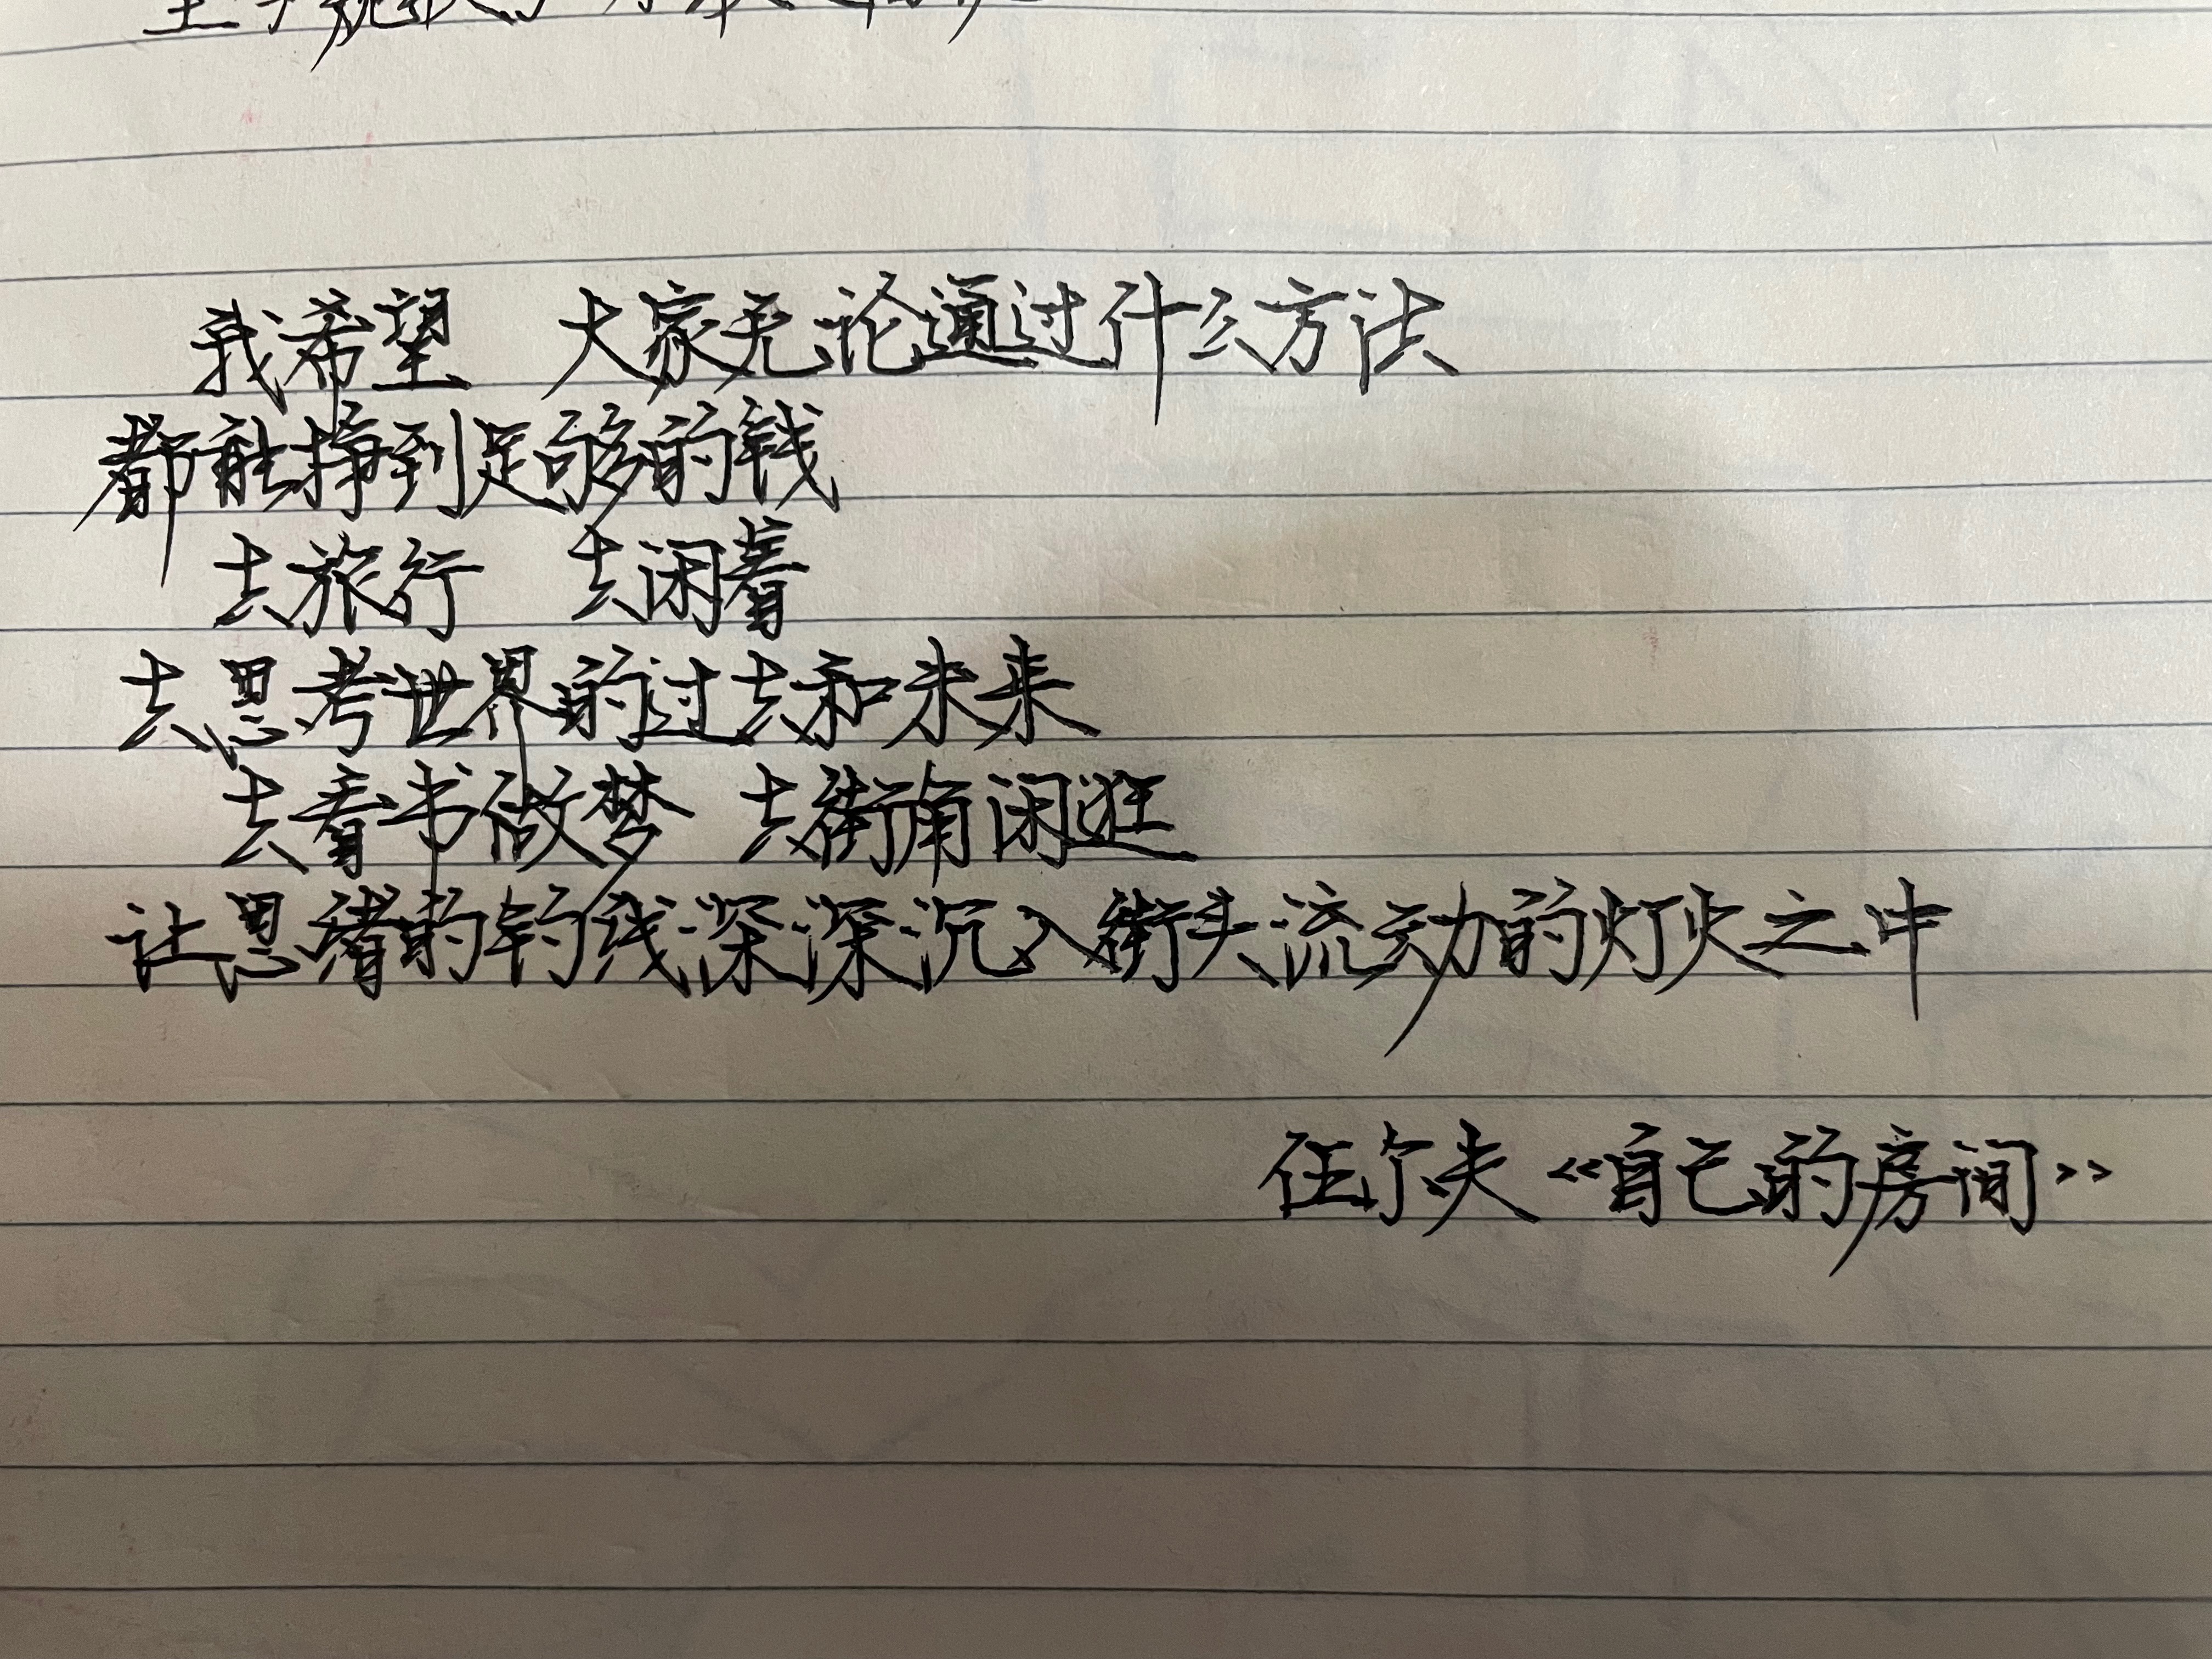 我希望 大家无论通过什么方法
都能挣到足够的钱
去旅行 去闲着
去思考世界的过去和未来
去看书做梦 去街角闲逛
让思绪的钓线深深沉入街头流动的灯火之中
伍尔夫《自己的房间》